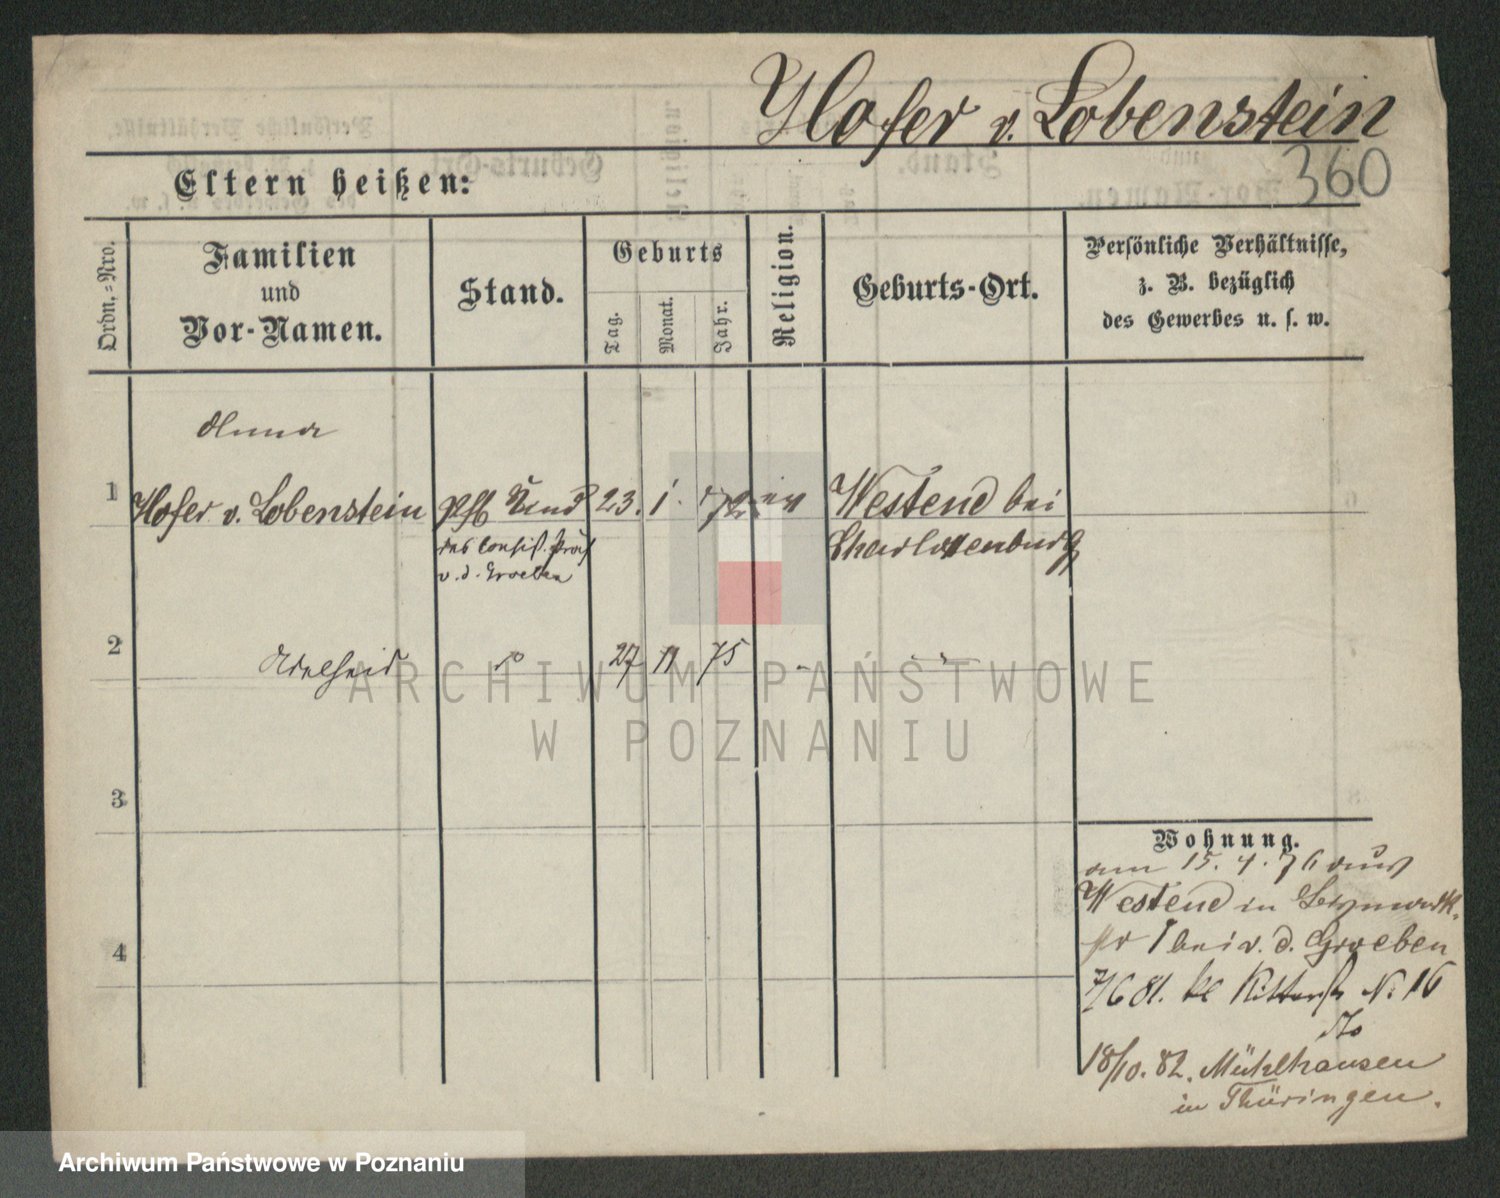 Hofer v. Lobenstein
360
Eltern heißen:
Ordn.-Nro.
Familien
und
Vor-Namen.
Stand.
Geburts
Tag.
Monat.
Jahr.
Religion.
Geburts-Ort.
Persönliche Verhältnisse,
z. B. bezüglich
des Gewerbes u. s. w.
Anna
1 Hofer v. Lobenstein Pfl Kind 23. 1. 72 ev Westend bei
des Consist. Präs Charlottenburg
v. d. Groeben
2 Adelheid do 27 11 75
3
4
Wohnung.
am 15. 4. 76 aus
Westend in
bei v. d. Groeben
7/6 81. kl Ritterstr No 16
do
18/10. 82. Mühlhausen
in Thüringen.
ARCHIWUM PAŃSTWOWE
W POZNANIU
Archiwum Państwowe w Poznaniu